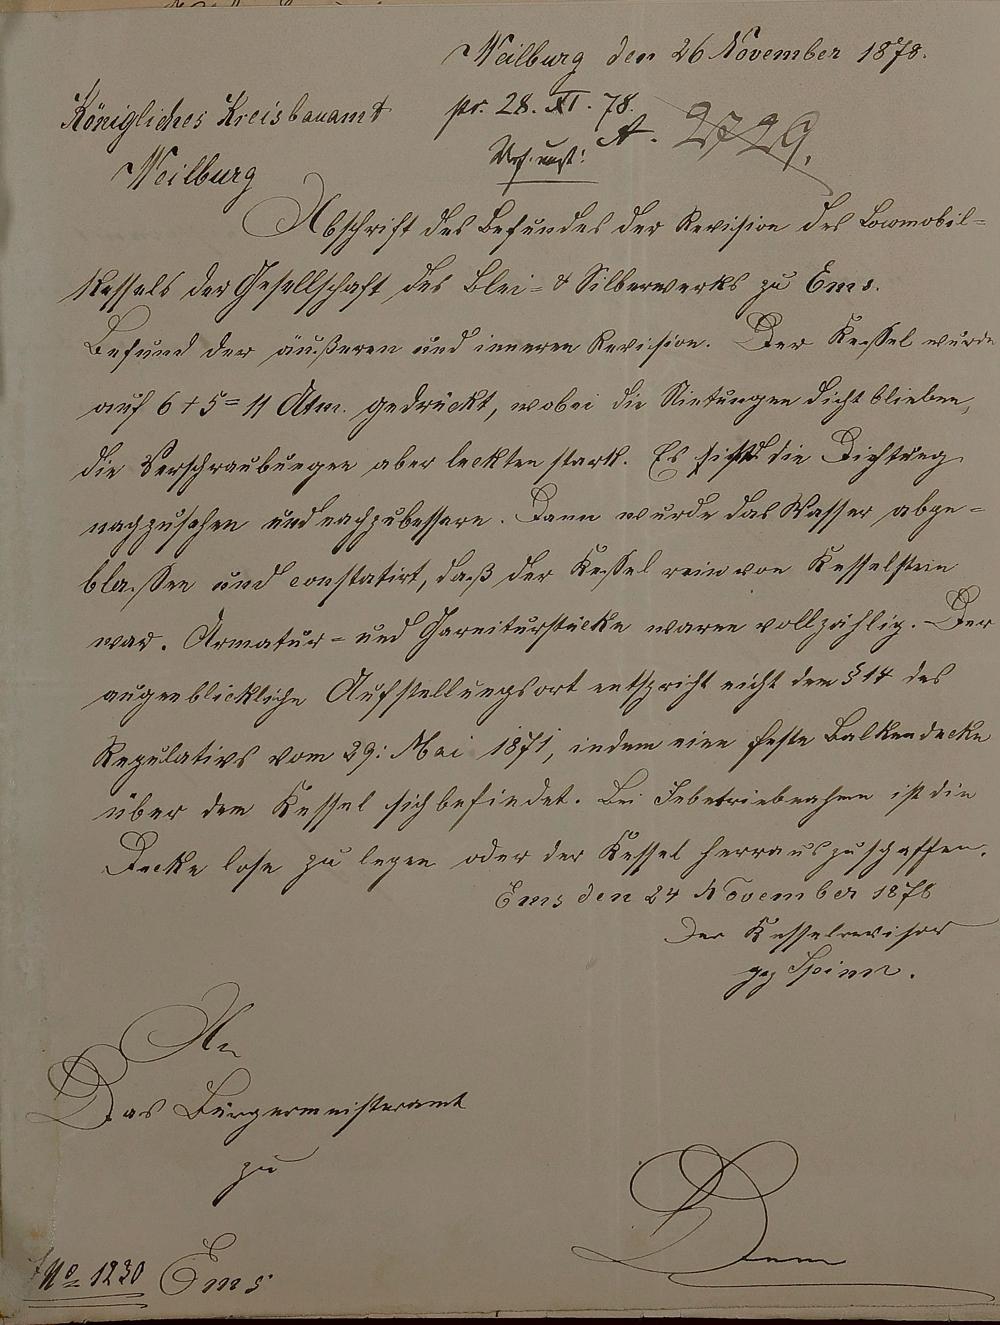 Weilburg den 26 November 1878.
Königliches Kreisbauamt
Weilburg
pr. 28. XI. 78.
A. 2729.
Abschrift des Befundes der Revision des Locomobil=
Kessels der Gesellschaft des Blei= & Silberwerks zu Ems.
Befund der äußeren und inneren Revision. Der Kessel wurde
auf 6 + 5 = 11 Atm. gedrückt, wobei die Nietungen dicht blieben,
die Verschraubungen aber leckten stark. Es die Dichtung
nachzusehen und nachzubessern. Dann wurde das Wasser abge=
blassen und constatirt, daß der Kessel rein von Kesselstein
war. Armatur= und Garniturstücke waren vollzählig. Der
augenblickliche Aufstellungsort entspricht nicht dem § 14 des
Regulativs vom 29: Mai 1871, indem eine feste Balkendecke
über dem Kessel sich befindet. Bei Inbetriebnahme ist die
Decke lose zu legen oder der Kessel herrauszuschaffen.
Ems den 24 November 1878
Der Kesselrevisor
gez Spinn.
An
Das Bürgermeisteramt
zu
Ems
No 1230